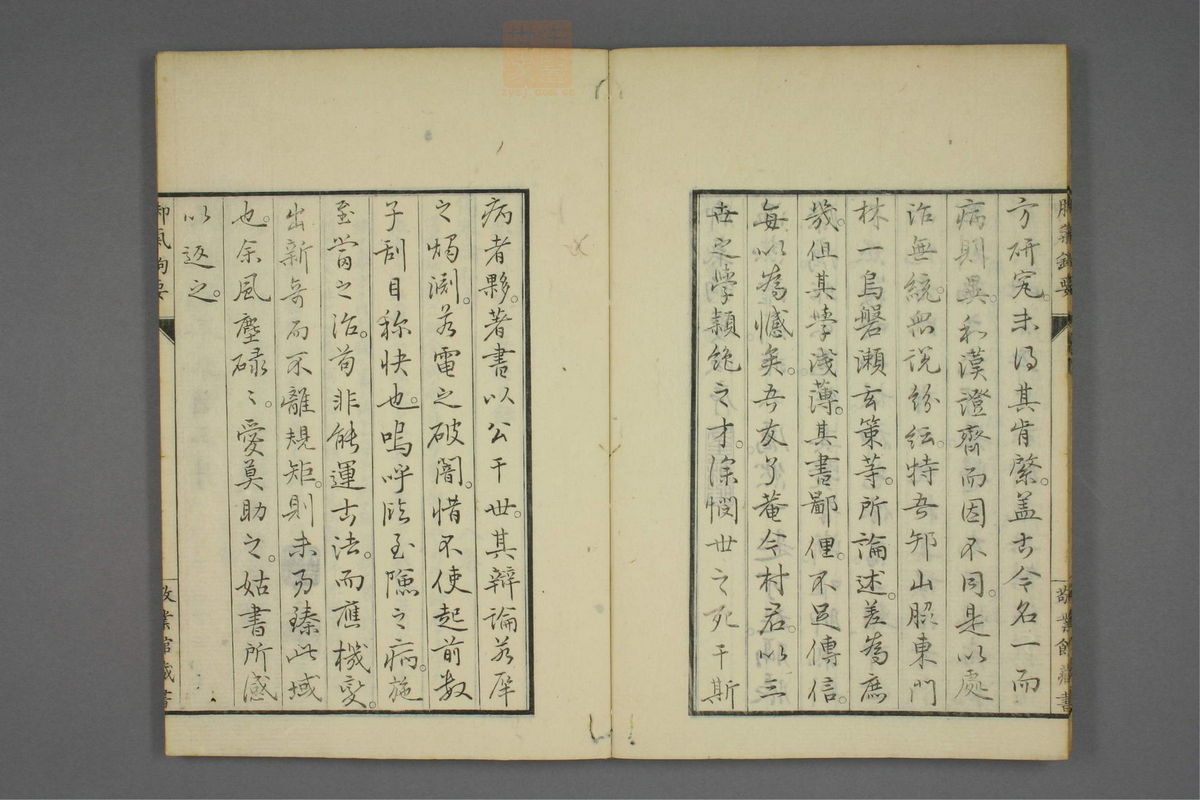 方研究。未得其肯綮。盖古今名一而
病則異。和漢證齊而因不同。是以處
治無統。眾説紛紜。特吾邦山脇東門
林一烏磐瀬玄策等。所論述。差為庶
幾。但其學淺薄。其書鄙俚。不足傳信。
每以為憾矣。吾友了菴今村君。以三
世之學。穎絶之才。深憫世之死于斯
病者夥。著書以公于世。其辯論若犀
之燭淵。若電之破闇。惜不使起前數
子刮目称快也。嗚呼臨至險之病。施
至當之治。苟非能運古法。而應機變。
出新奇而不離規矩。則未易臻此域
也。余風塵碌々。愛莫助之。姑書所感
以返之。
脚氣鉤要
敬業館藏書